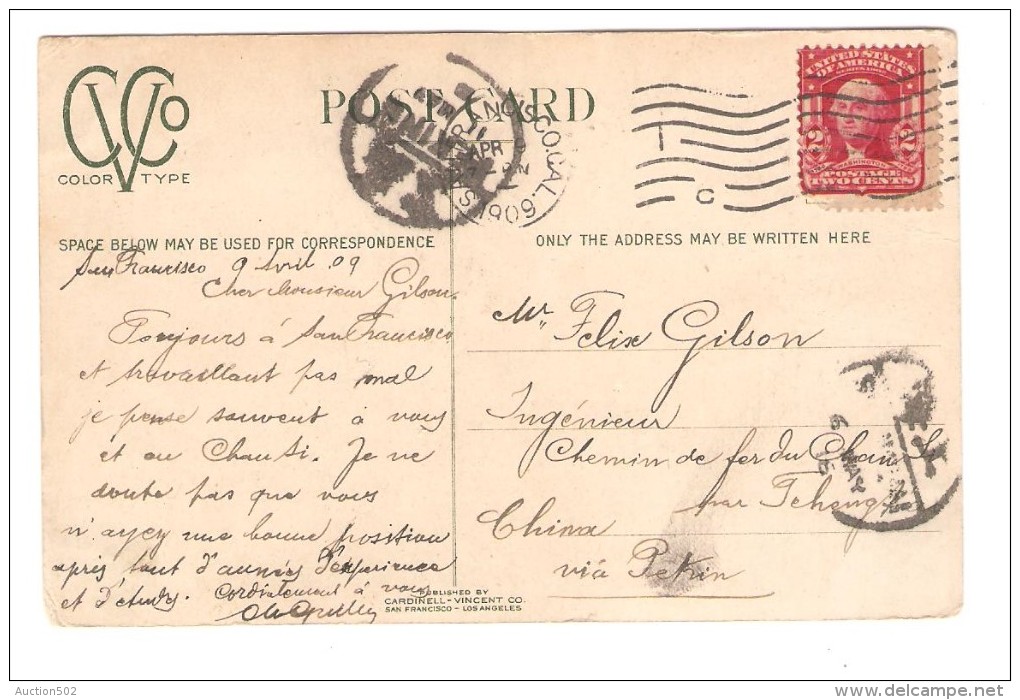 CVCo
COLOR TYPE
POST CARD
SAN FRANCISCO, CAL.
APR
1909
UNITED STATES
OF AMERICA
2 2
WASHINGTON
POSTAGE
TWO CENTS
C
SPACE BELOW MAY BE USED FOR CORRESPONDENCE
ONLY THE ADDRESS MAY BE WRITTEN HERE
San Francisco 9 Avril 09
Cher Monsieur Gilson.
Toujours à San Francisco
et travaillant pas mal
je pense souvent à vous
et au Chansi. Je ne
doute pas que vous
n'ayez une bonne position
après tout d'années d'expérience
et d'études. Cordialement à vous
Mr. Felix Gilson
Ingénieur
Chemin de fer du Chan Si
par
China
viâ Pekin
MAY
PUBLISHED BY
CARDINELL-VINCENT CO.
SAN FRANCISCO - LOS ANGELES
Auction502
delcampe.net